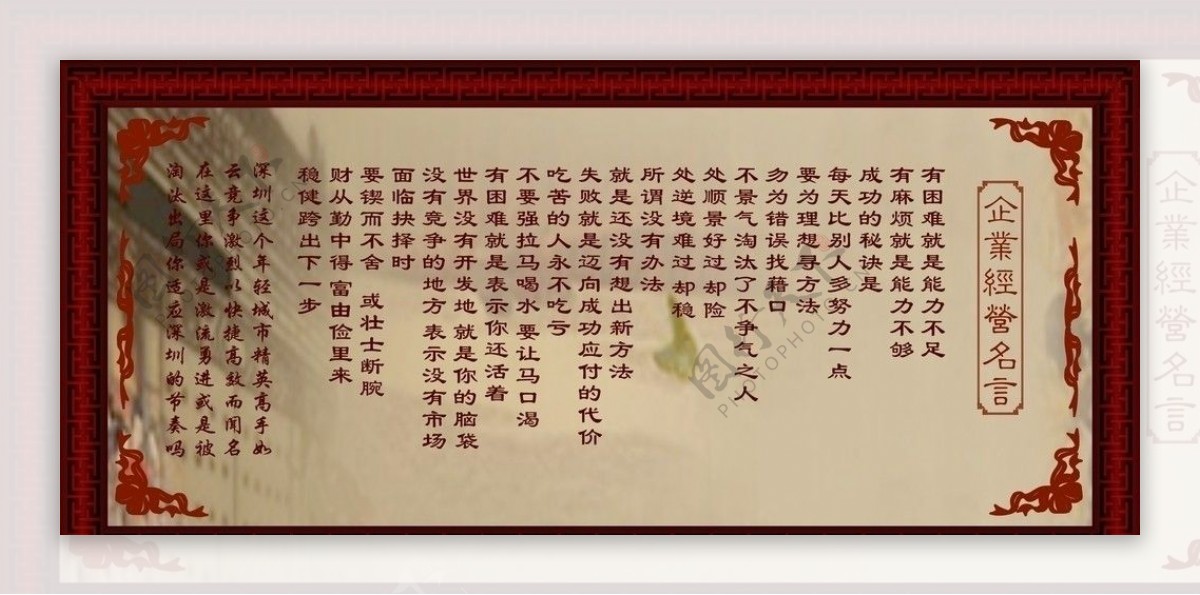 企業經營名言
有困难就是能力不足
有麻烦就是能力不够
成功的秘诀是
每天比别人多努力一点
要为理想寻方法
勿为错误找藉口
不景气淘汰了不争气之人
处顺景好过却险
处逆境难过却稳
所谓没有办法
就是还没有想出新方法
失败就是迈向成功应付的代价
吃苦的人永不吃亏
不要强拉马喝水 要让马口渴
有困难就是表示你还活着
世界没有开发地 就是你的脑袋
没有竞争的地方 表示没有市场
面临抉择时
要锲而不舍 或壮士断腕
财从勤中得 富由俭里来
稳健跨出下一步
深圳这个年轻城市精英高手如
云竞争激烈以快捷高效而闻名
在这里你或是激流勇进或是被
淘汰出局你适应深圳的节奏吗
图行天下
PHOTOPHOTO.CN